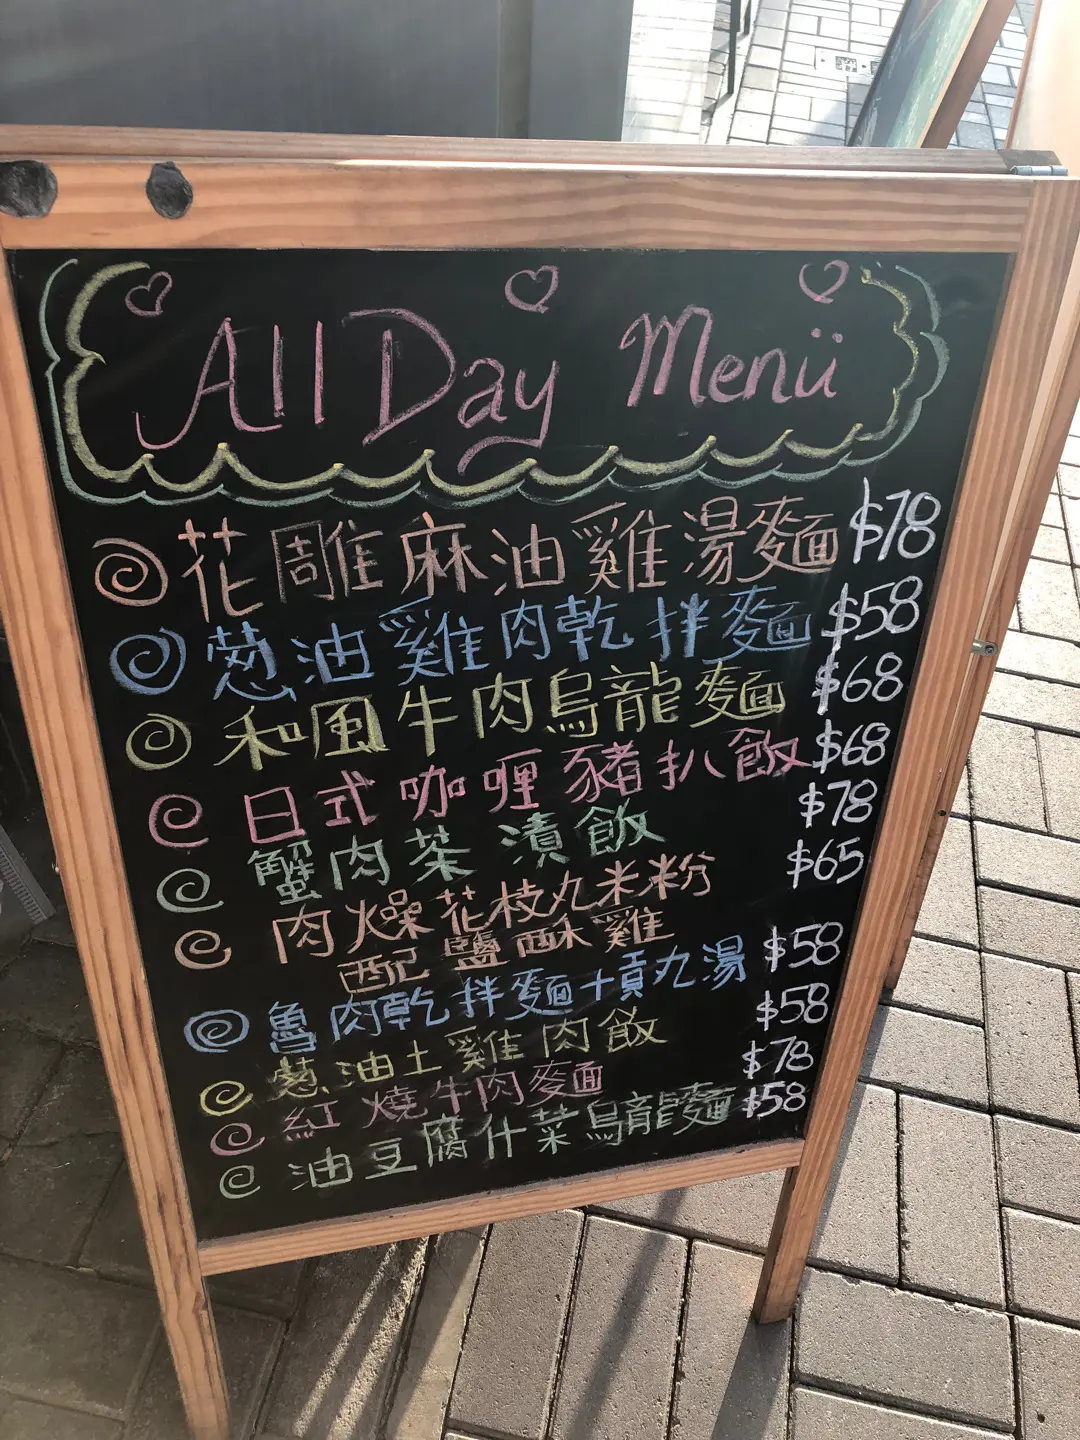 All Day Menü
花雕麻油雞湯麵 $78
葱油雞肉乾拌麵 $58
和風牛肉烏龍麵 $68
日式咖喱豬扒飯 $68
蟹肉茶漬飯 $78
肉燥花枝丸米粉 $65
配鹽酥雞
魯肉乾拌麵+貢丸湯 $58
葱油土雞肉飯 $58
紅燒牛肉麥面 $78
油豆腐什菜烏龍麵 $58